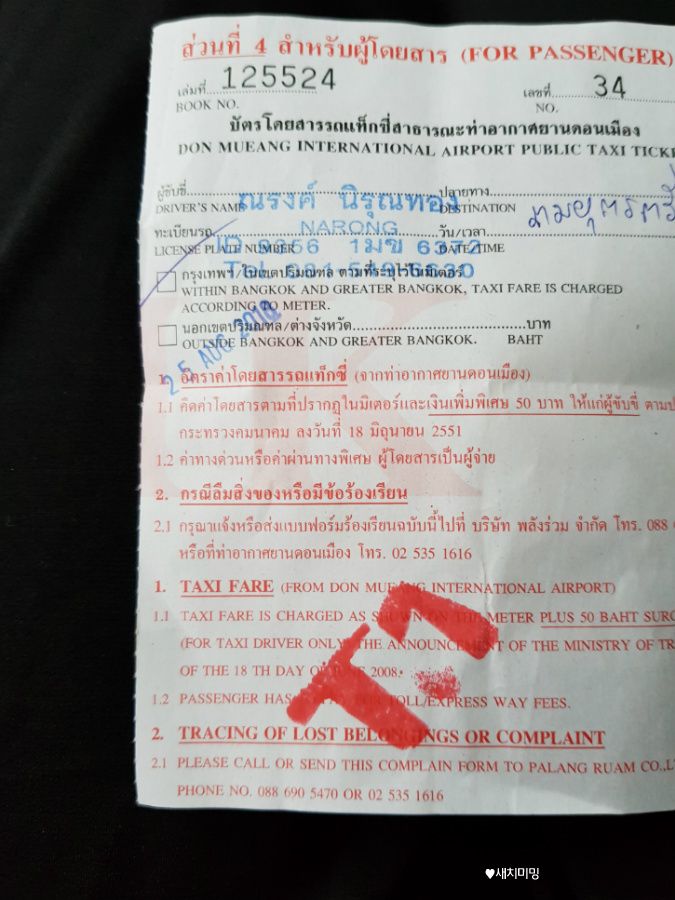 ส่วนที่ 4 สำหรับผู้โดยสาร (FOR PASSENGER)
เล่มที่ 125524 เลขที่ 34
BOOK NO. NO.
บัตรโดยสารรถแท็กซี่สาธารณะท่าอากาศยานดอนเมือง
DON MUEANG INTERNATIONAL AIRPORT PUBLIC TAXI
ผู้ขับขี่ ณรงค์ นิรุณทอง ปลายทาง
DRIVER'S NAME DESTINATION
ทะเบียนรถ NARONG วัน/เวลา
LICENSE PLATE NUMBER 1มข 6372 DATE/TIME
Tel.
กรุงเทพฯ/ในเขตปริมณฑล ตามที่ระบุไว้ในมิเตอร์
WITHIN BANGKOK AND GREATER BANGKOK, TAXI FARE IS CHARGED
ACCORDING TO METER.
นอกเขตปริมณฑล/ต่างจังหวัด บาท
OUTSIDE BANGKOK AND GREATER BANGKOK. BAHT
25 AUG
1. อัตราค่าโดยสารรถแท็กซี่ (จากท่าอากาศยานดอนเมือง)
1.1 คิดค่าโดยสารตามที่ปรากฏในมิเตอร์และเงินเพิ่มพิเศษ 50 บาท ให้แก่ผู้ขับขี่
กระทรวงคมนาคม ลงวันที่ 18 มิถุนายน 2551
1.2 ค่าทางด่วนหรือค่าผ่านทางพิเศษ ผู้โดยสารเป็นผู้จ่าย
2. กรณีลืมสิ่งของหรือมีข้อร้องเรียน
2.1 กรุณาแจ้งหรือส่งแบบฟอร์มร้องเรียนฉบับนี้ไปที่ บริษัท พลังร่วม จำกัด โทร. 088
หรือที่ท่าอากาศยานดอนเมือง โทร. 02 535 1616
1. TAXI FARE (FROM DON MUEANG INTERNATIONAL AIRPORT)
1.1 TAXI FARE IS CHARGED AS SHOWN ON THE METER PLUS 50 BAHT
(FOR TAXI DRIVER ONLY) THE ANNOUNCEMENT OF THE MINISTRY OF
OF THE 18 TH DAY OF JUNE 2008.
1.2 PASSENGER HAS TOLL/EXPRESS WAY FEES.
2. TRACING OF LOST BELONGINGS OR COMPLAINT
2.1 PLEASE CALL OR SEND THIS COMPLAIN FORM TO PALANG RUAM
PHONE NO. 088 690 5470 OR 02 535 1616
♥새치미밍